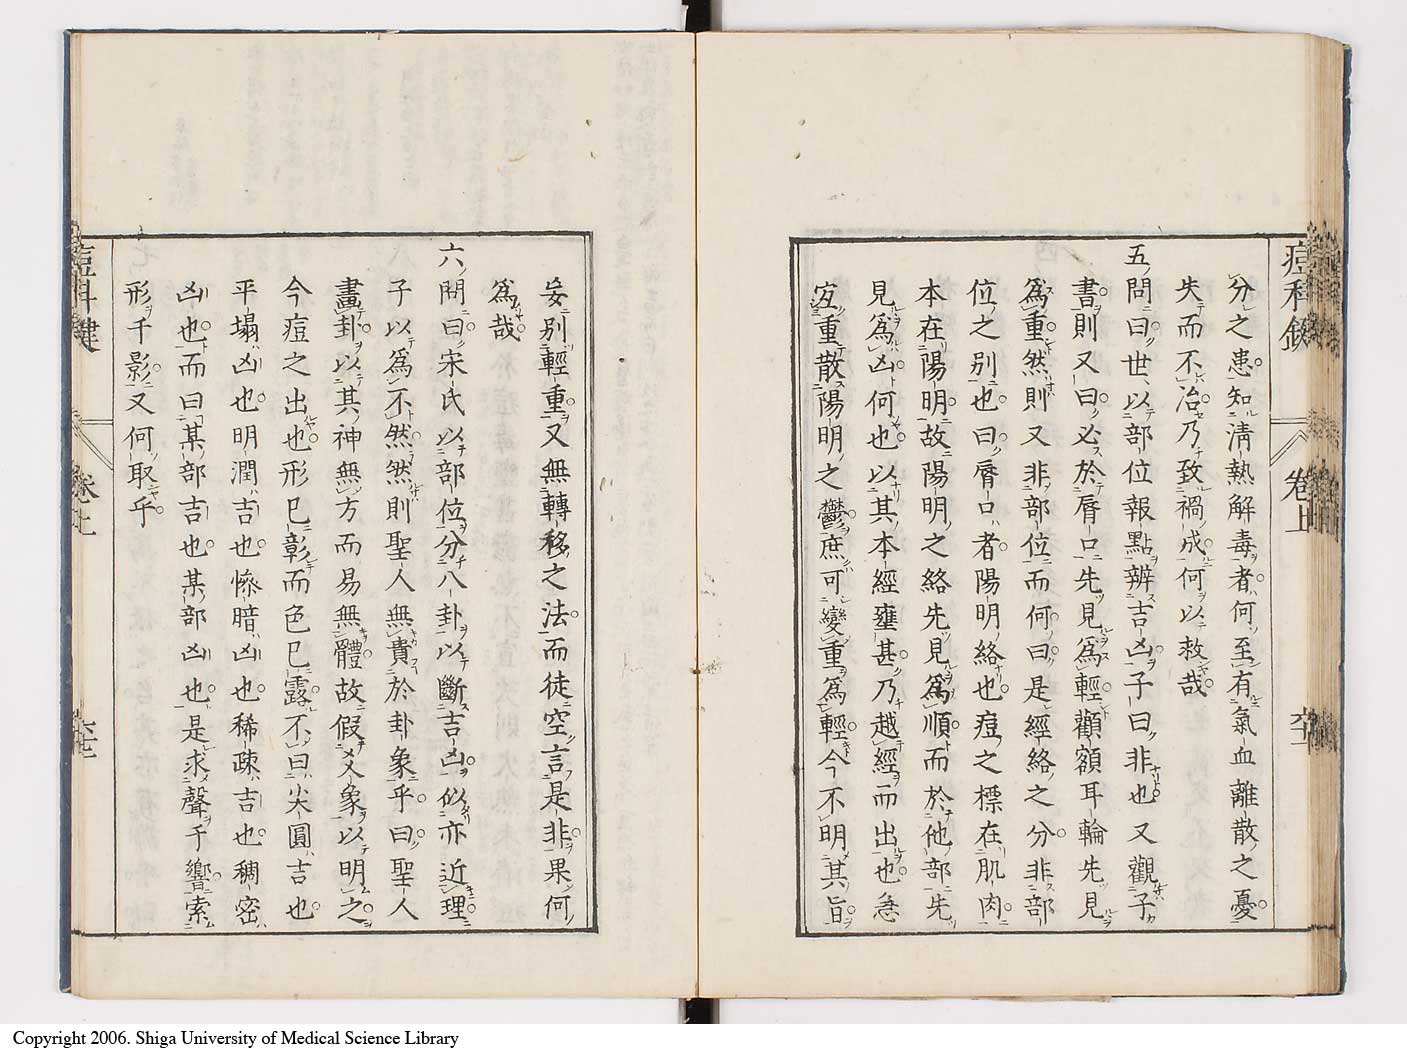 分之患知淸熱解毒者何至有氣血離散之憂
失而不治乃致禍成何以救哉
五問曰世以部位報點辨吉凶子曰非也又觀子
書則又曰必於脣口先見爲輕顴額耳輪先見
爲重然則又非部位而何曰是經絡之分非部
位之別也曰脣口者陽明絡也痘之標在肌肉
本在陽明故陽明之絡先見爲順而於他部先
見爲凶何也以其本經壅甚乃越經而出也急
宜重散陽明之鬱庶可變重爲輕今不明其旨
妄別輕重又無轉移之法而徒空言是非果何
爲哉
六問曰宋氏以部位分八卦以斷吉凶似亦近理
子以爲不然然則聖人無貴於卦象乎曰聖人
畫卦以其神無方而易無體故假爻象以明之
今痘之出也形已彰而色已露不曰尖圓吉也
平塌凶也明潤吉也慘暗凶也稀疎吉也稠密
凶也而曰某部吉也某部凶也是求聲于響索
形于影又何取乎
卷上
Copyright 2006. Shiga University of Medical Science Library